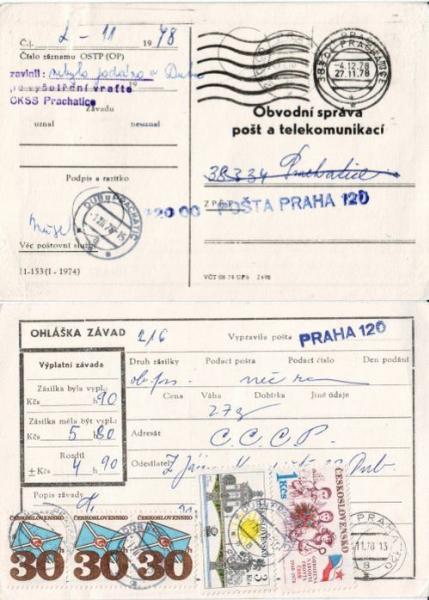 Č.j. 2-11 1978
Číslo záznamu OSTP (OP)
zavinil: nebylo podáno v Dubu
po vyšetření vraťte
OKSS Prachatice
Závadu
uznal neuznal
Podpis a razítko
DUB U PRACHATIC
Věc poštovní služby
11-153 (I - 1974)
383 01 PRACHATICE 1
-4.12.78
27.11.78
Obvodní správa
pošt a telekomunikací
38334 Prachatice
120 00 POŠTA PRAHA 120
VČT
OHLÁŠKA ZÁVAD 2/6
Vypravila pošta PRAHA 120
Výplatní závada
Zásilka byla vypl.:
Kčs h 90
Zásilka měla být vypl.:
Kčs 5 h 80
Rozdíl
± Kčs 4 h 90
Popis závady
Druh zásilky Podací pošta Podací číslo Den podání
ob. ps.
Cena Váha Dobírka Jiné údaje
27g
Adresát C.C.C.P.
Odesílatel Dub
ČESKOSLOVENSKO
30h
ČESKOSLOVENSKO
30h
ČESKOSLOVENSKO
30h
3 Kčs
1 Kčs
ČESKOSLOVENSKO
PRAHA 120